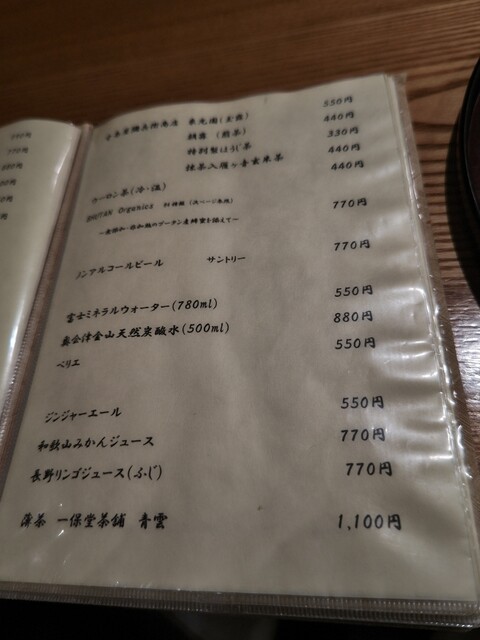 東光園(玉露) 550円
朝露 (煎茶) 440円
特別製ほうじ茶 330円
抹茶入 玄米茶 440円
ウーロン茶(冷・温) 440円
BHUTAN Organics 770円
ノンアルコールビール サントリー 770円
富士ミネラルウォーター(780ml) 550円
奥会津金山天然炭酸水(500ml) 880円
ペリエ 550円
ジンジャーエール 550円
和歌山みかんジュース 770円
長野リンゴジュース(ふじ) 770円
薄茶 一保堂茶舗 青雲 1,100円